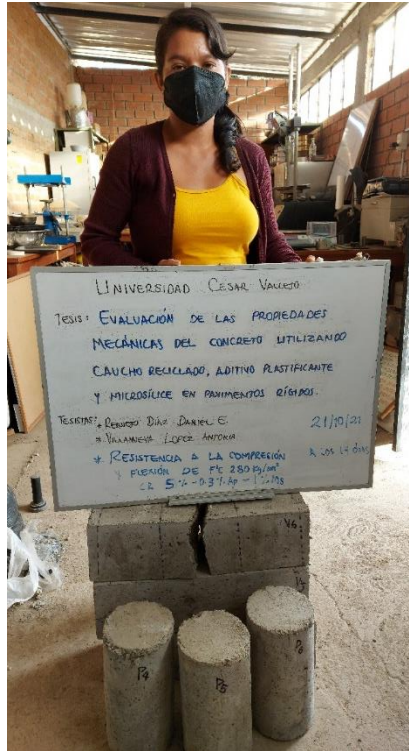 UNIVERSIDAD CESAR VALLEJO
TESIS: EVALUACIÓN DE LAS PROPIEDADES
MECÁNICAS DEL CONCRETO UTILIZANDO
CAUCHO RECICLADO, ADITIVO PLASTIFICANTE
Y MICROSÍLICE EN PAVIMENTOS RÍGIDOS.
TESISTAS: * DÍAZ DANIEL E. 21/10/21
* VILLANUEVA LOPEZ ANTONIA
* RESISTENCIA A LA COMPRESIÓN A LOS 14 DÍAS
Y FLEXIÓN DE F'C 280 Kg/cm²
CR 5% - 0.3% AP - 1%
V6
P4
P5
P6